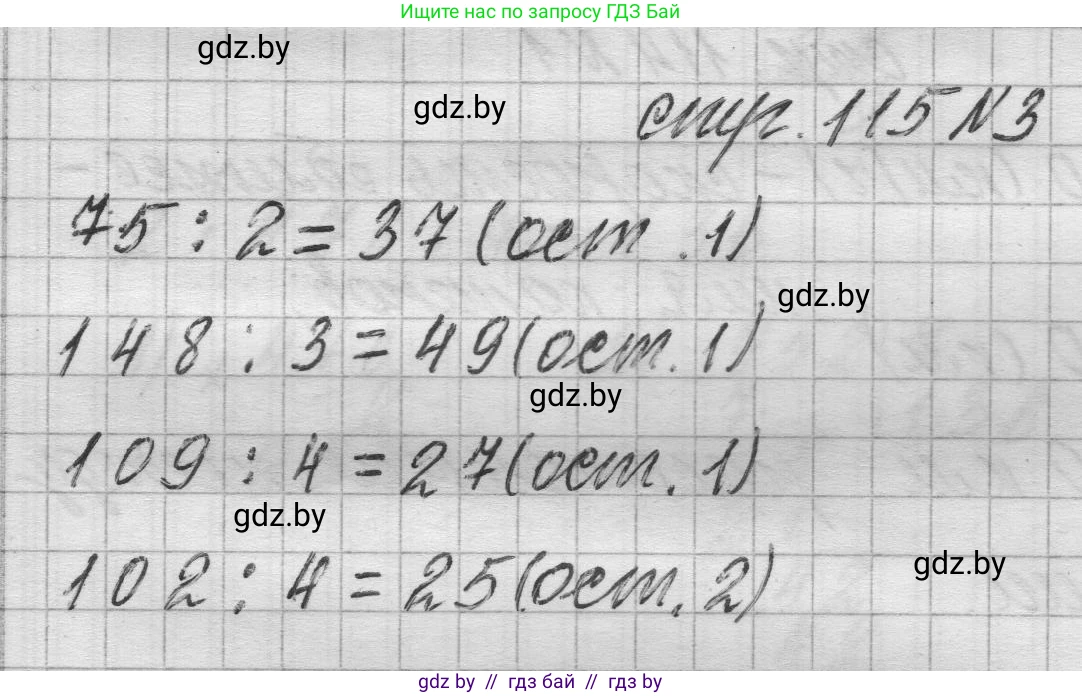 Ищите нас по запросу ГДЗ Бай
gdz.by
gdz.by
стр. 115 №3
75 : 2 = 37 (ост. 1)
gdz.by
148 : 3 = 49 (ост. 1)
gdz.by
109 : 4 = 27 (ост. 1)
gdz.by
102 : 4 = 25 (ост. 2)
gdz.by
gdz.by // гдз бай // гдз by